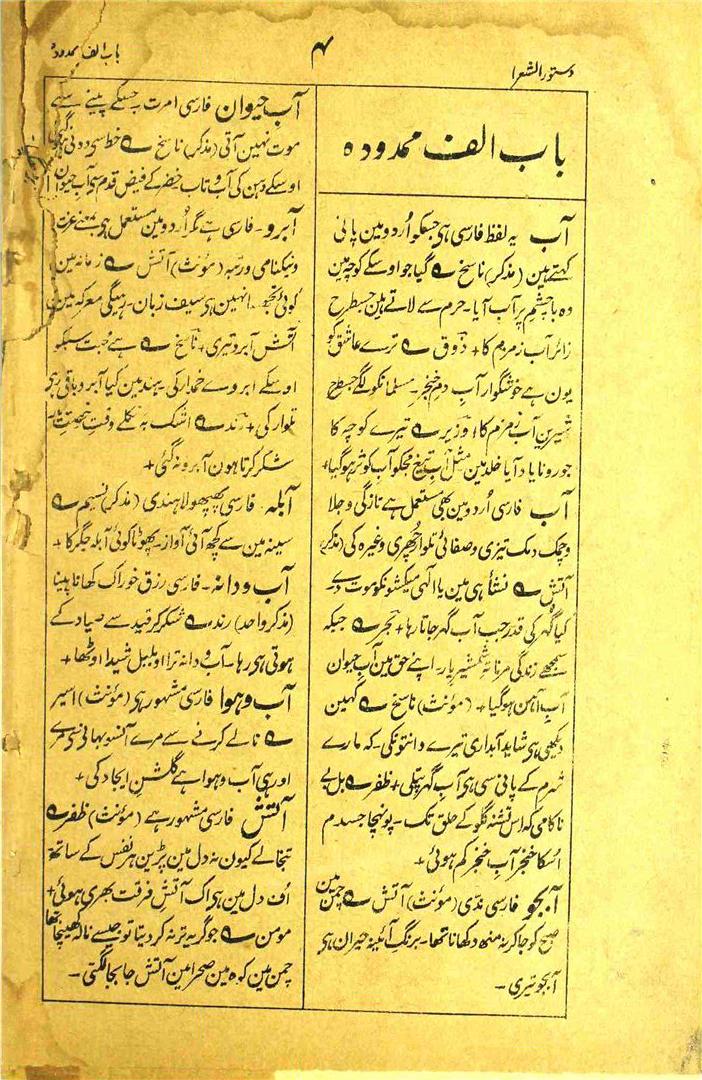 دستور الشعرا
۴
باب الف ممدودہ
باب الف ممدودہ
آب یہ لفظ فارسی ہی جسکو اُردو مین پانی
کہتے ہین (مذکر) ناسخ ؎ گیا جو اوسکے کوچہ مین
وہ باچشمِ پر آب آیا۔ حرم سے لاتے ہین جسطرح
زائر آب زمزم کا + ذوق ؎ ترے عاشق کو
یون ہے خوشگوار آبِ دمِ خنجر۔ مسلمانکو لگے جسطرح
شیرین آب زمزم کا + وزیر ؎ تیرے کوچہ کا
جو رونا یاد آیا خلد مین مثل آبِ تیغ مجکو آب کوثر ہوگیا +
آب فارسی اُردو مین بھی مستعمل ہے تازگی و جلا
و چمک دمک تیزی و صفائی تلوار چھری وغیرہ کی (مذکر)
آتش ؎ نشأ ہی مین یا الٰہی میکشونکو موت دے۔
کیا گہر کی قدر جب آب گہر جاتا رہا + بحر ؎ جبکہ
سمجھے زندگی مرنا تہ شمشیر یار۔ اپنے حق مین آب حیوان
آبِ آہن ہوگیا + (مؤنث) ناسخ ؎ کہین
دیکھی ہی شاید آبداری تیرے دانتونکی۔ کہ مارے
شرم کے پانی سی ہی آبِ گہر پتلی + ظفر ؎ بل بے
ناکامی کہ اس تشنہ گلو کے حلق تک۔ پونہچا جسدم
اُسکا خنجر آبِ خنجر کم ہوئی +
آبجو فارسی ندّی (مؤنث) آتش ؎ چمن مین
صبح کو جا کر نہ منھ دکھانا تھا۔ برنگِ آئینہ حیران ہی
آبجو تیری ۔
آب حیوان فارسی امرت ہے جسکے پینے سے
موت نہین آتی (مذکر) ناسخ ؎ خط سی دونی ہو گئی
اوسکے دہن کی آب و تاب خضر کے فیض قدم ہی آب حیوان
آبرو۔ فارسی ہے مگر اُردو مین مستعمل ہو بمعنے عزت
و نیکنامی و رتبہ (مؤنث) آتش ؎ زمانہ مین
کوئی تجھ انہین ہی سیف زبان۔ رہیگی معرکہ مین
آتش آبرو تیری + ناسخ ؎ ہے محبت سبکو
اوسکے ابروے خمدار کی۔ ہند مین کیا آبرو باقی ہی
تلوار کی + رند ؎ اشک بہ نکلے وقتِ رخصتِ یار
شکر کرتا ہون آبرو نہ گئی +
آبلہ فارسی پھپھولا ہندی (مذکر) نسیم ؎
سینہ مین سے کچھ آئی آواز۔ پھوٹا کوئی آبلہ جگر کا +
آب و دانہ۔ فارسی رزق خوراک کھانا پینا
(مذکر واحد) رند ؎ شکر کر قید سے صیاد کے
ہوتی ہی رہا۔ آب و دانہ ترا او بلبلِ شیدا اوٹھا +
آب و ہوا فارسی مشہور ہی (مؤنث) اسیر
؎ نالے کرنے سے مرے آنسو بھانی سی مرے
اور ہی آب و ہوا ہے گلشنِ ایجاد کی +
آتش فارسی مشہور ہے (مؤنث) ظفر ؎
تبخالے کیون نہ دل مین پڑین ہر نفس کے ساتھ
اُف دل مین ہی اک آتشِ فرقت بھری ہوئی +
مومن ؎ جو گریہ تر نہ کر دیتا تو جیسے نالہ کھینچا تھا
چمن مین کوہ مین صحرا مین آتش جا بجا لگتی ۔